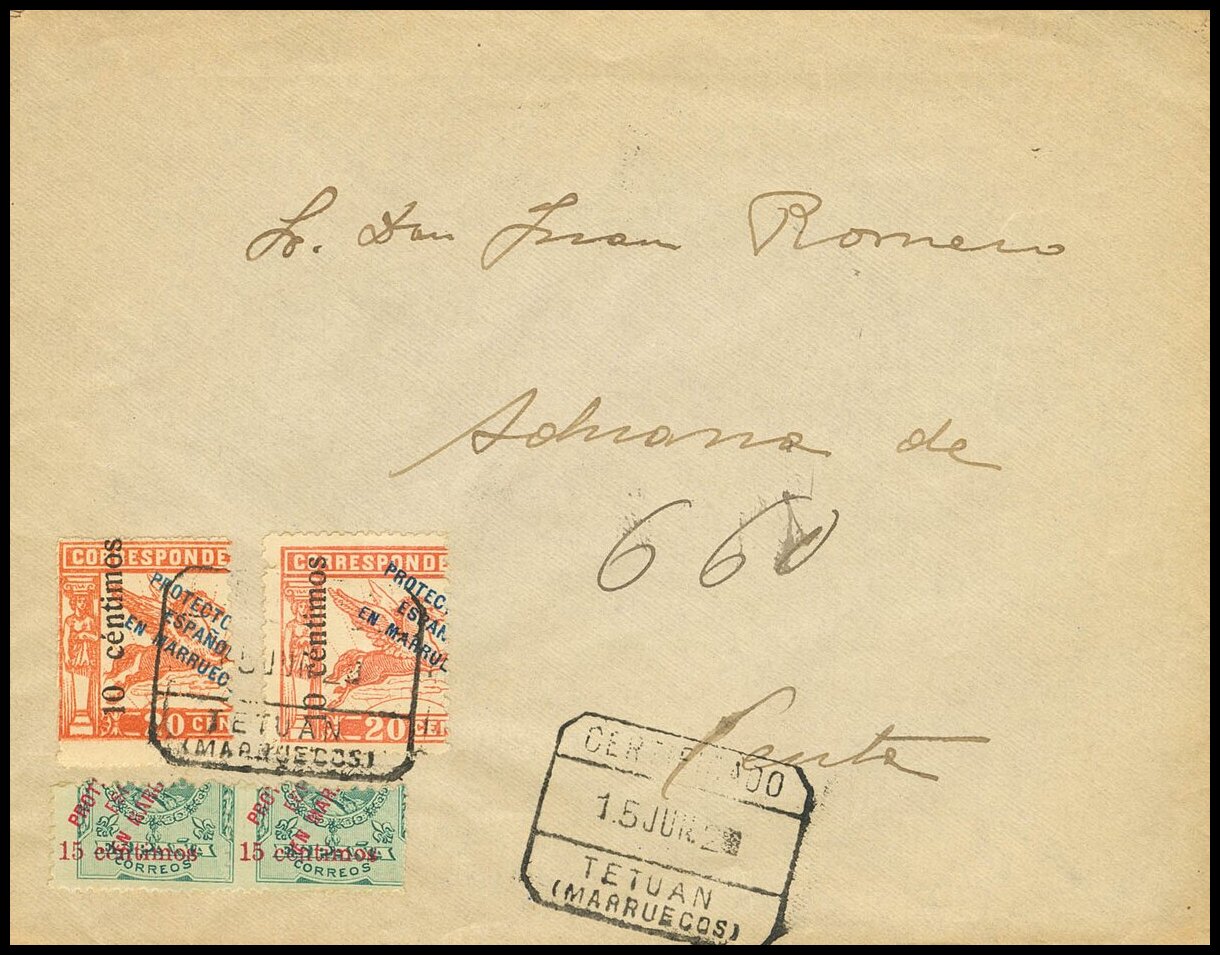 Sr. Don Juan Romero
Aduana de
660
Ceuta
CORRESPONDE
10 céntimos
PROTECTO
ESPAÑOL
EN MARRUEC
20 CEN
CORRESPONDE
10 céntimos
PROTEC
ESPAÑ
EN MARRUE
20 CEN
TETUAN
(MARRUECOS)
PROT
EN MARR
15 céntimos
CORREOS
PROT
EN MAR
15 céntimos
CORREOS
CERTIFICADO
15 JUN. 2
TETUAN
(MARRUECOS)